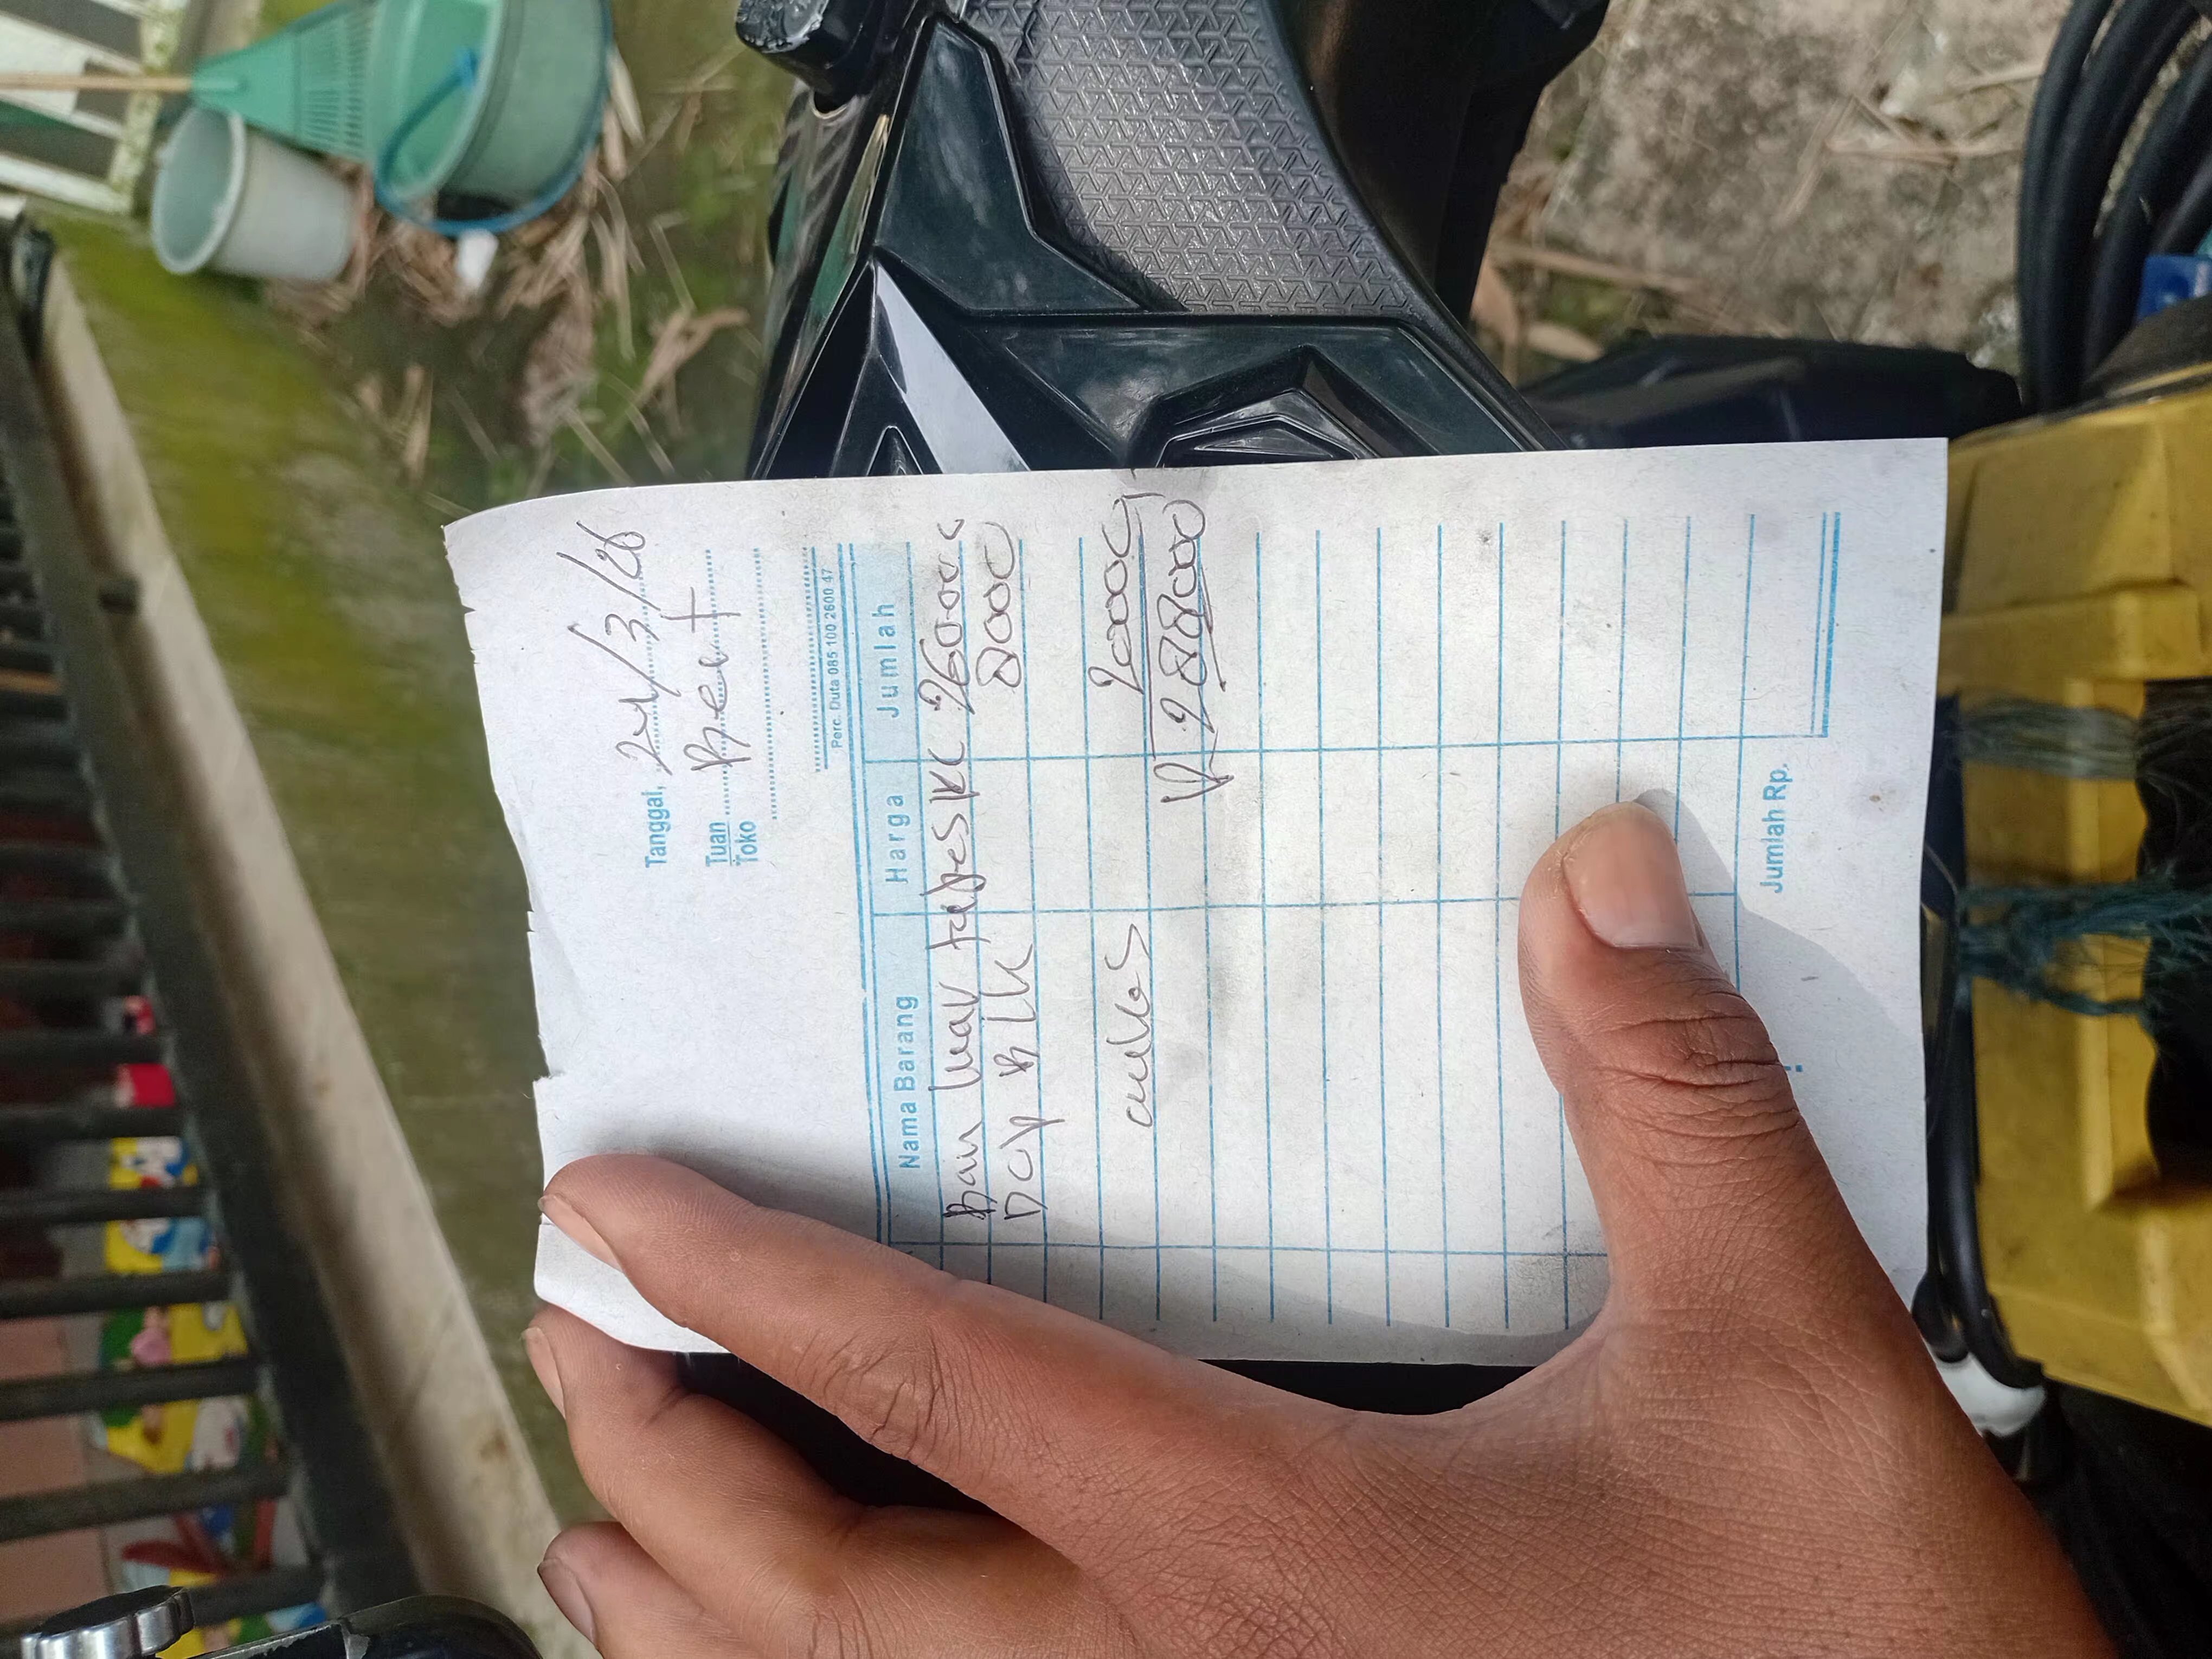 Tanggal, 24/3/26
Tuan Beat
Toko
Perc. Duta 085 100 2600 47
Nama Barang Harga Jumlah
Ban luar 260000
Dop 8000
ongkos 20000
Rp 288000
Jumlah Rp.